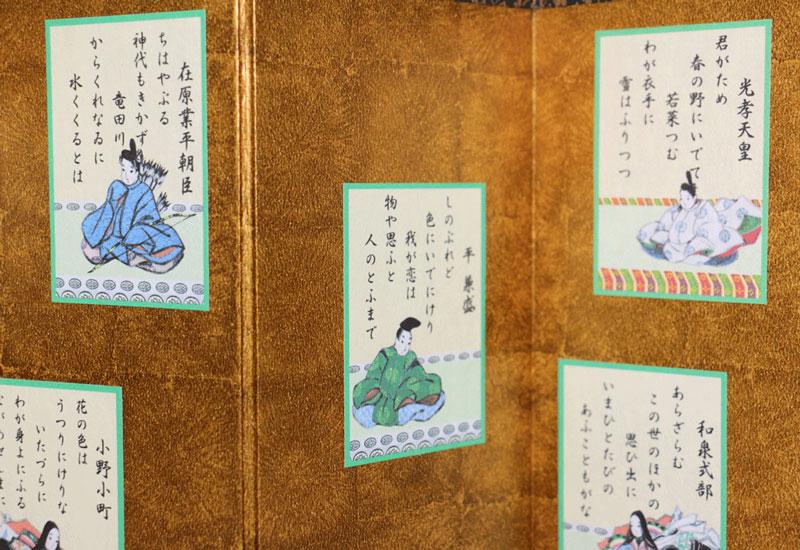 在原業平朝臣
ちはやぶる
神代もきかず
竜田川
からくれなゐに
水くくるとは
平兼盛
しのぶれど
色にいでにけり
我が恋は
物や思ふと
人のとふまで
光孝天皇
君がため
春の野にいでて
若菜つむ
わが衣手に
雪はふりつつ
小野小町
花の色は
うつりにけりな
いたづらに
わが身よにふる
和泉式部
あらざらむ
この世のほかの
思ひ出に
いまひとたびの
あふこともがな